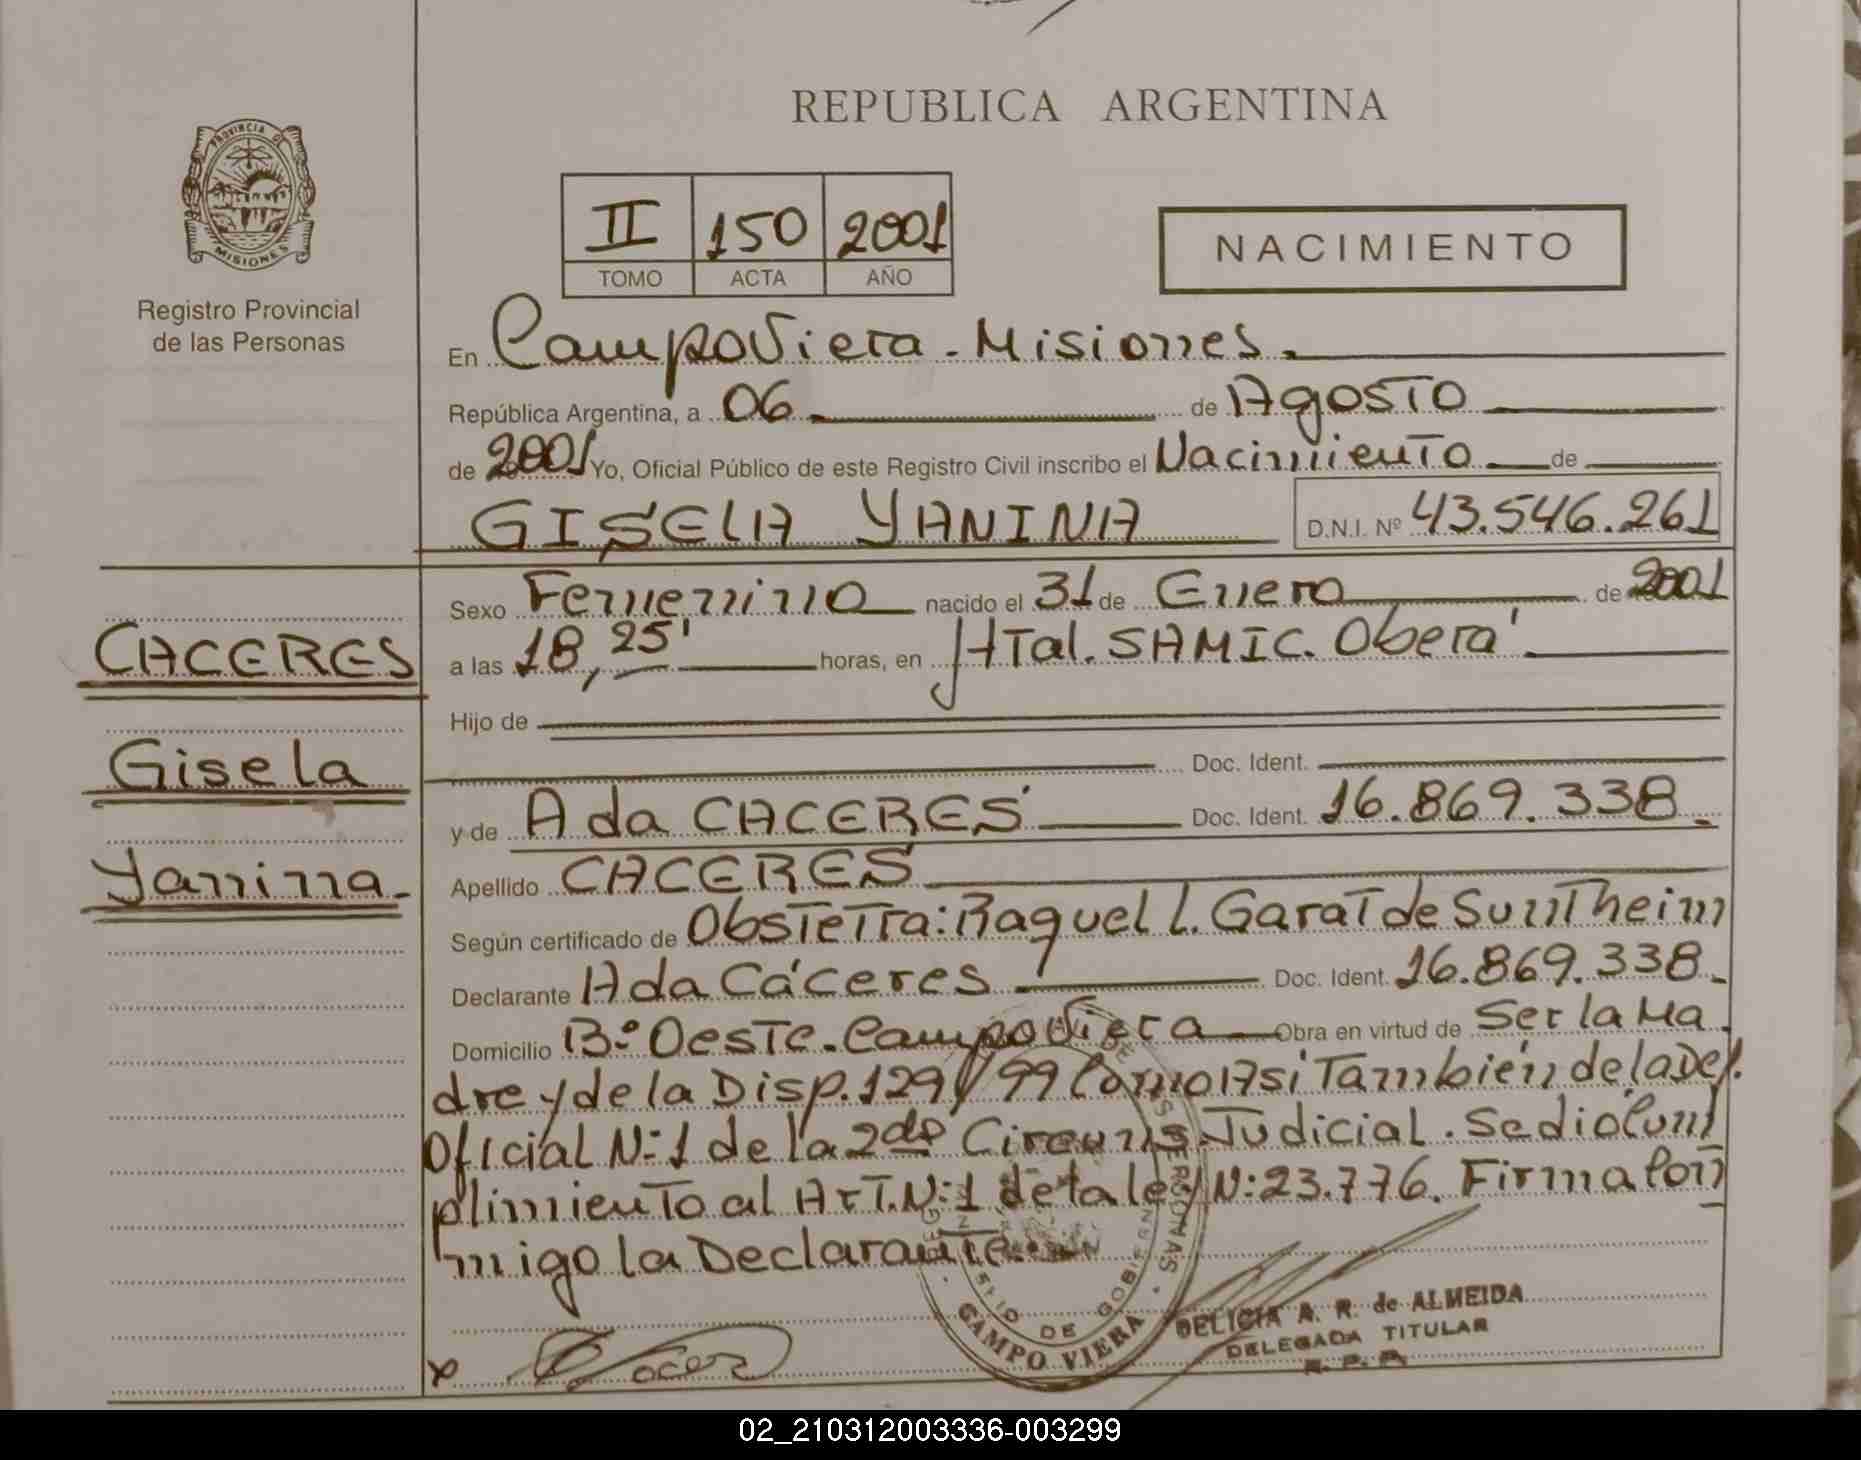 REPUBLICA ARGENTINA
PROVINCIA DE
MISIONES
Registro Provincial
de las Personas
II 150 2001
TOMO ACTA AÑO
NACIMIENTO
En Campo Viera - Misiones.
República Argentina, a 06 de Agosto
de 2001 Yo, Oficial Público de este Registro Civil inscribo el Nacimiento de
GISELA YANINA D.N.I. Nº 43.546.261
CACERES
Gisela
Yanina
Sexo Femenino nacido el 31 de Enero de 2001
a las 18,25' horas, en HTal. SAMIC. Oberá
Hijo de
Doc. Ident.
y de Ada CACERES Doc. Ident. 16.869.338
Apellido CACERES
Según certificado de Obstetra: Raquel L. Garat de Suntheim
Declarante Ada Cáceres Doc. Ident. 16.869.338
Domicilio Bº Oeste. Campo Viera Obra en virtud de Ser la Ma
dre y de la Disp. 129/99 Como Asi También de la Def.
Oficial N:1 de la 2da Circuns. Judicial. Se dió Cum
plimiento al ArT. N:1 de la ley N:23.776. Firma Con
migo la Declarante.
DE GOBIERNO
CAMPO VIERA
DELICIA A. R. de ALMEIDA
DELEGADA TITULAR
R. P. P.
02_210312003336-003299